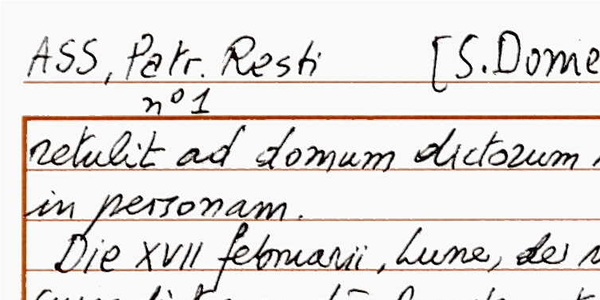 ASS, Patr. Resti [S. Dome
nº 1
retulit ad domum dictorum
in personam.
Die XVII februarii, Lune, de